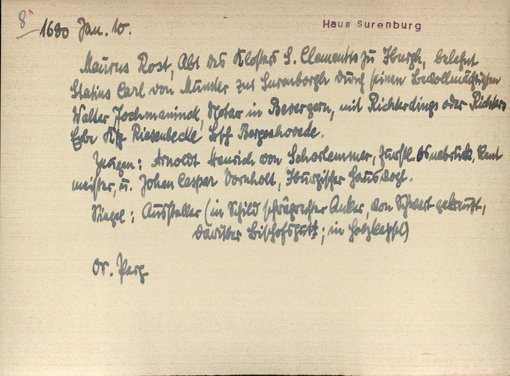 8
Haus Surenburg
1680 Jan. 10.
Maurus Rost, Abt des Klosters S. Clementis zu Iburg, belehnt
Statius Carl von Münder zur Surenborgh durch seinen bevollmächtigten
Walter Jochmaninck, Notar in Bevergern, mit Richterdings oder Richters
Erbe Ksp. Riesenbeck Bsch. Bergeshovede.
Zeugen: Arnoldt Henrich von Schorlemmer, Fürstl. Osnabrück. Rent
meister, u. Johan Caspar Dornholt, Iburgischer Hausvogt.
Siegel: Aussteller (in Schild schrägrechter Anker von Schwert gekreuzt,
darüber Bischofshut; in Holzkapsel)
Or. Perg